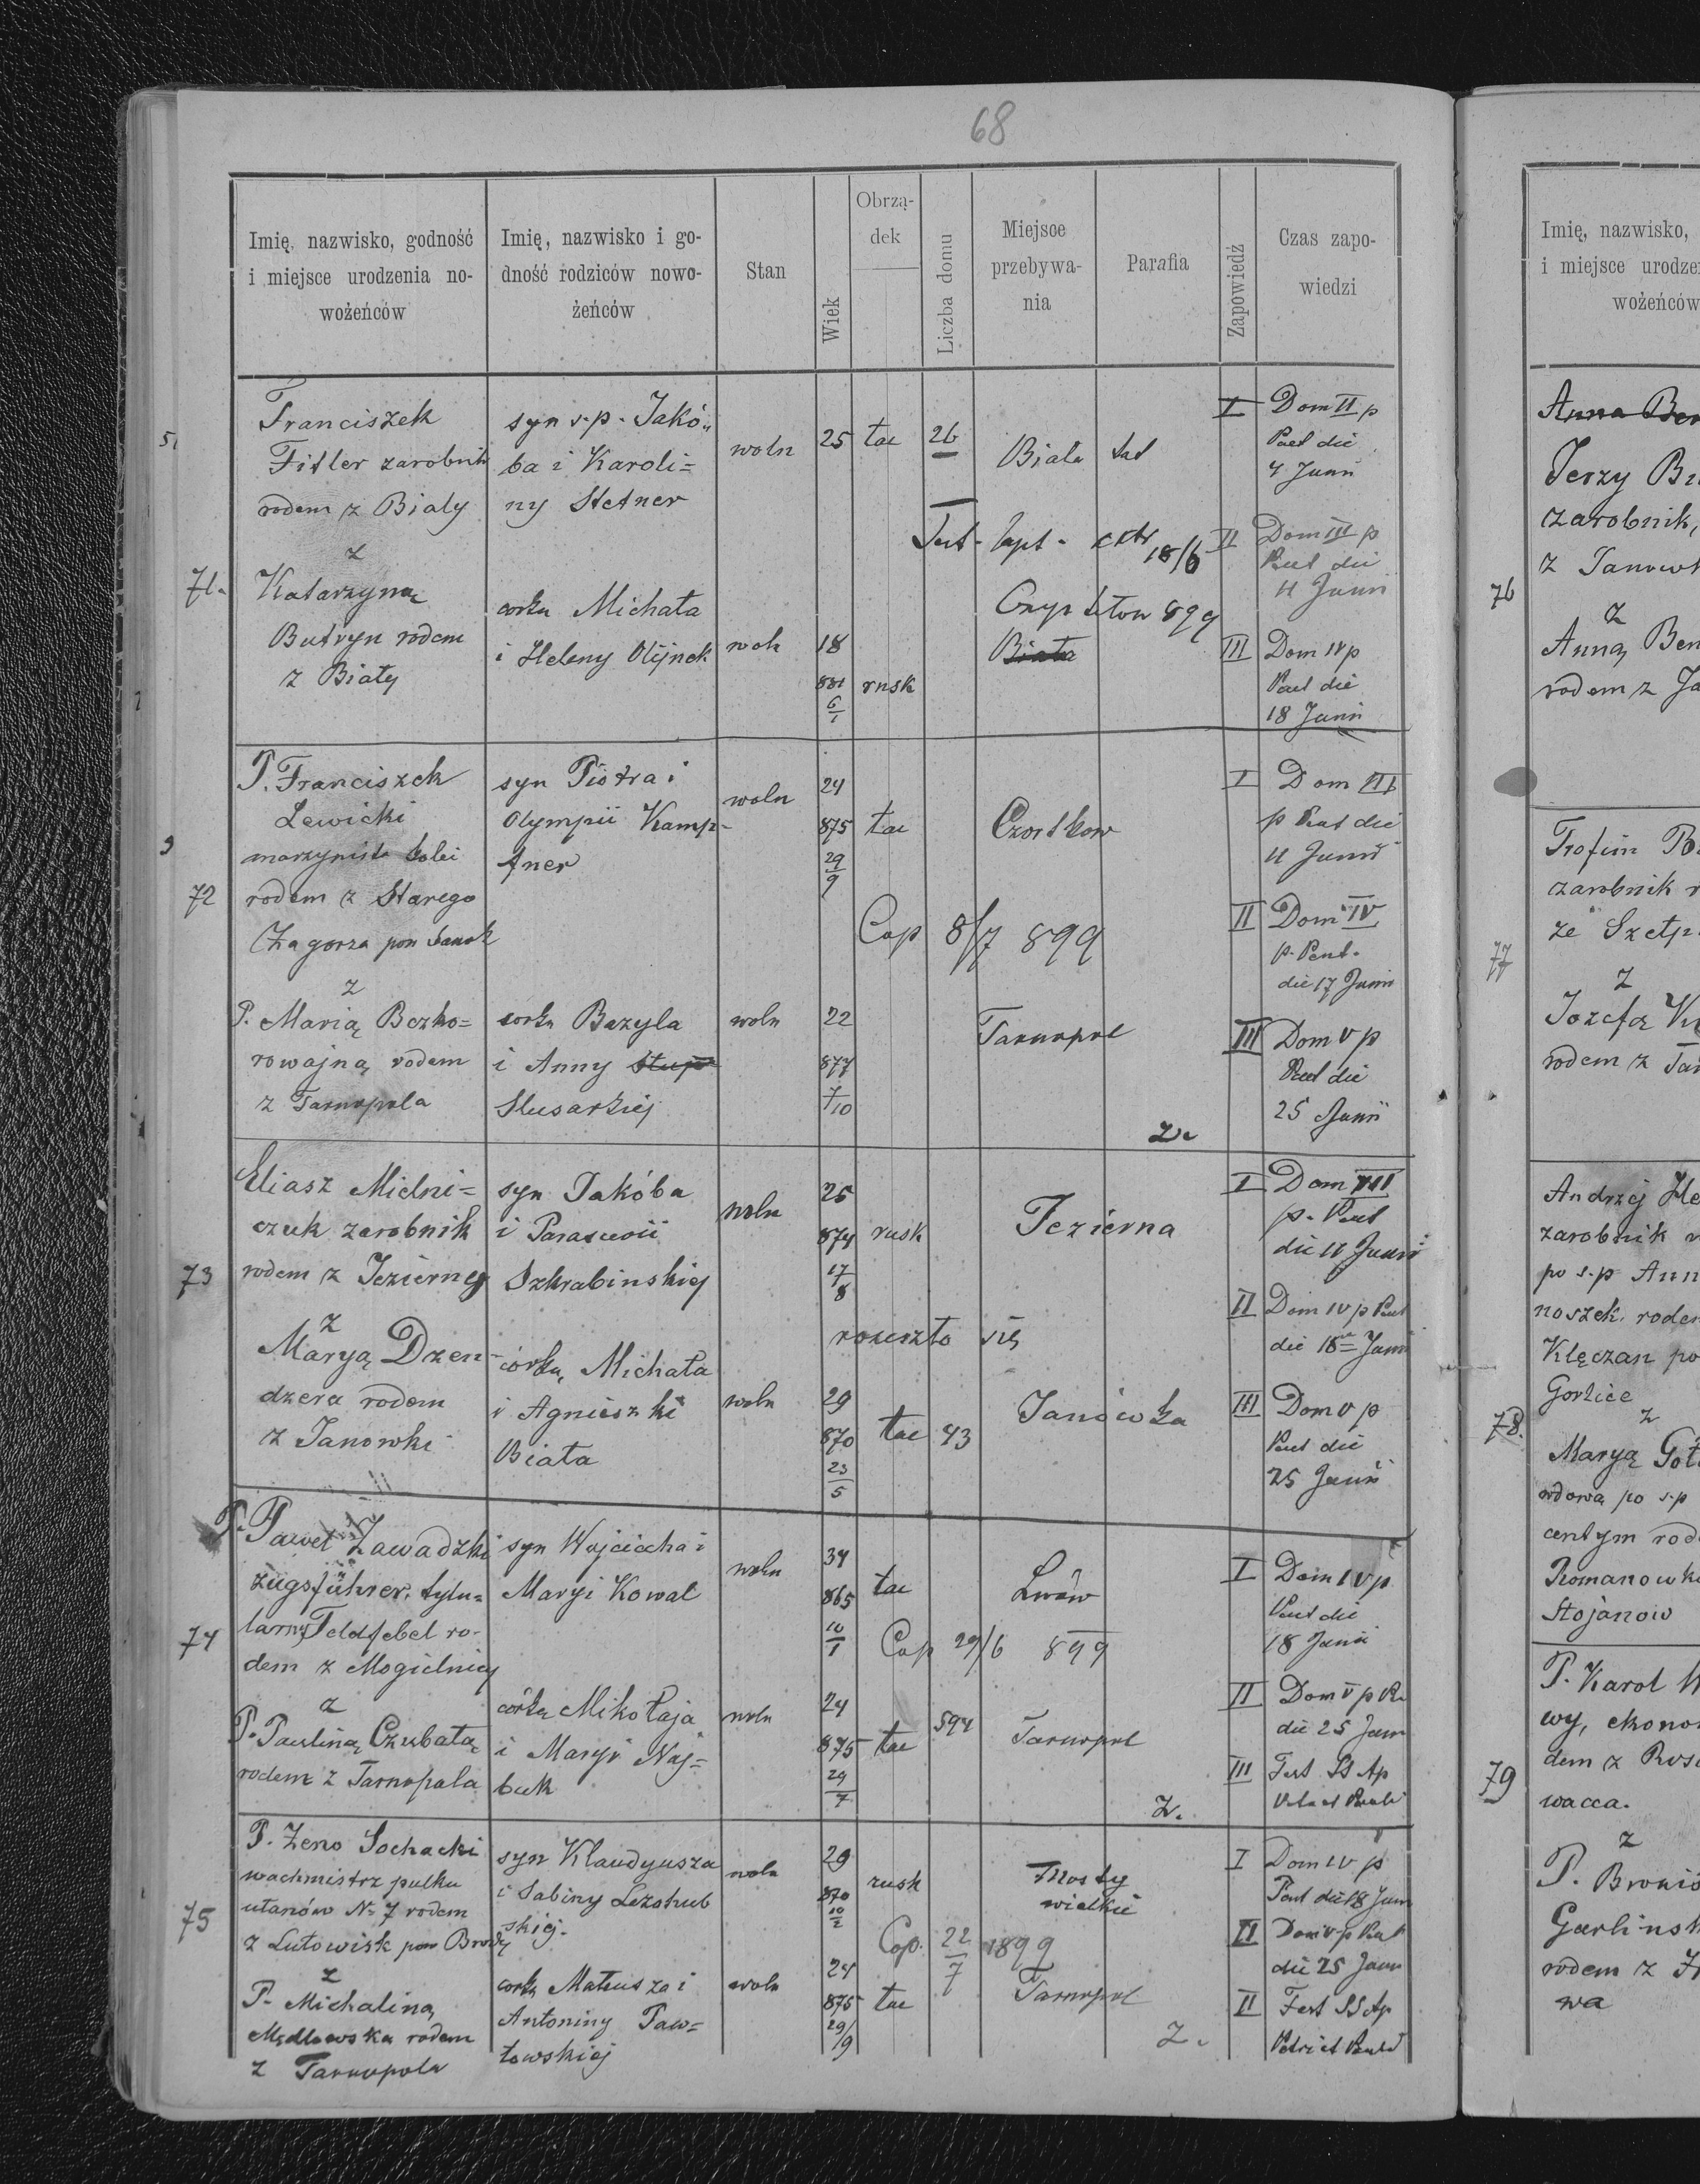 68
Imię, nazwisko, godność
i miejsce urodzenia no-
wożeńców
Imię, nazwisko i go-
dność rodziców nowo-
żeńców
Stan
Wiek
Obrzą-
dek
Liczba domu
Miejsce
przebywa-
nia
Parafia
Zapowiedź
Czas zapo-
wiedzi
71.
Franciszek
Fitler zarobnik
rodem z Biały
z
Katarzyną
Butryn rodem
z Biały
syn s.p. Jakó-
ba i Karoli=
ny Stetner
córka Michała
i Heleny Olijnek
woln
woln
25
18
881
6/1
łac
rusk
26
Biała
18/6
899
Biała
I Dom II p
Pent die
4 Junii
II Dom III p
Pent die
11 Junii
III Dom IV p
Pent die
18 Junii
72
P. Franciszek
Lewicki
maszynista kolei
rodem z Starego
Zagorza pow Sanok
z
P. Marią Bezko=
rowajną rodem
z Tarnopola
syn Piotra i
Olympii Kamp-
tner
córka Bazyla
i Anny
Slusarkiej
woln
woln
24
875
29/9
22
877
7/10
łac
Cop 8/7 899
Czortkow
Tarnopol
Z.
I Dom III
p Pent die
11 Junii
II Dom IV
p. Pent.
die 17 Junii
III Dom V p
Pent die
25 Junii
73
Eliasz Mielni=
czuk zarobnik
rodem z Jezierny
z
Maryą Dzen-
dzera rodem
z Janowki
syn Jakóba
i Parascevii
Szkrabinskiej
córka Michała
i Agnieszki
Biała
woln
woln
25
874
17/8
29
870
23/5
rusk
rozeszło się
łac
43
Jezierna
Janówka
I Dom III
p. Pent
die 11 Junii
II Dom IV p Pent
die 18 Junii
III Dom V p
Pent die
25 Junii
74
P. Paweł Zawadzki
zugsführer, tytu=
larny Feldfebel ro-
dem z Mogielnicy
z
P. Pauliną Czubatą
rodem z Tarnopola
syn Wojciecha i
Maryi Kowal
córka Mikołaja
i Maryi Naj=
buk
woln
woln
34
865
10/1
24
875
29/7
łac
Cop 29/6 899
łac
594
Lwów
Tarnopol
Z.
I Dom IV p
Pent die
18 Junii
II Dom V p Pe
die 25 Junii
III Fest SS Ap
75
P. Zeno Sochacki
wachmistrz pułku
ułanów N. 7 rodem
z Lutowisk pow Brody
z
P. Michaliną
rodem
z Tarnopola
syn Klaudyusza
i Sabiny Lezohub
skiej.
córka Mateusza i
Antoniny Paw=
łowskiej
woln
woln
29
870
10/2
24
875
29/9
rusk
Cop. 22/7 1899
łac
Mosty
wielkie
Tarnopol
Z.
I Dom IV p
Pent die 18 Junii
II Dom V p Pent
die 25 Junii
II Fest SS Ap
Petri et Pauli
Imię, nazwisko,
i miejsce urodze
wożeńców
76
Anna Ben
Jerzy Bu
zarobnik,
z Janowk
z
Anną Ben
rodem z Ja
77
Trofim B
zarobnik r
ze Szełp
z
Jozefą K
rodem z Tar
78.
Andrzej He
zarobnik w
po s.p Ann
noszek. rodem
Klęczan po
Gorlice
z
Maryą Goł
wdową po s.p
centym rod
Romanowk
Stojanow
79
P. Karol
wy, ekono
dem z
wacca.
z
P. Bronis
Garlinsk
rodem z
wa